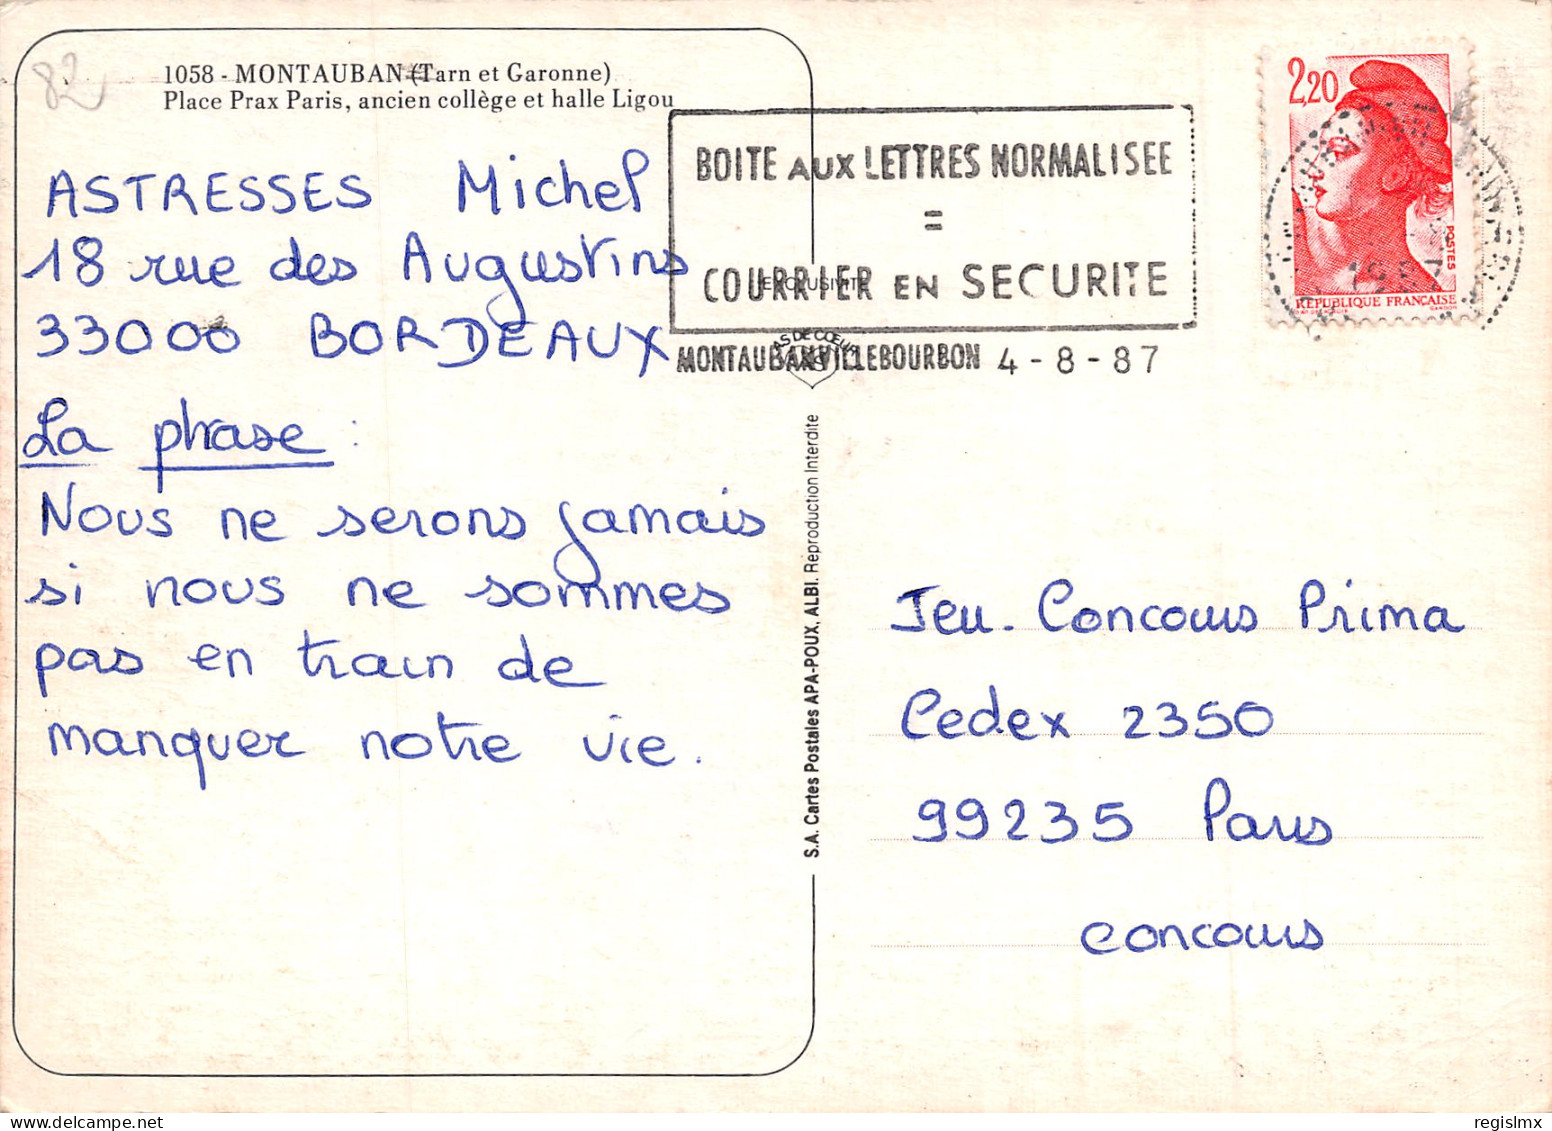 82
1058 - MONTAUBAN (Tarn et Garonne)
Place Prax Paris, ancien collège et halle Ligou
ASTRESSES Michel
18 rue des Augustins
33000 BORDEAUX
La phrase :
Nous ne serons jamais
si nous ne sommes
pas en train de
manquer notre vie.
BOITE AUX LETTRES NORMALISEE
=
COURRIER EN SECURITE
MONTAUBAN VILLEBOURBON 4-8-87
EXCLUSIVITE
AS DE CŒUR
S.A. Cartes Postales APA-POUX, ALBI. Reproduction Interdite
2,20
POSTES
RÉPUBLIQUE FRANÇAISE
Jeu. Concours Prima
Cedex 2350
99235 Paris
concours
regislmx